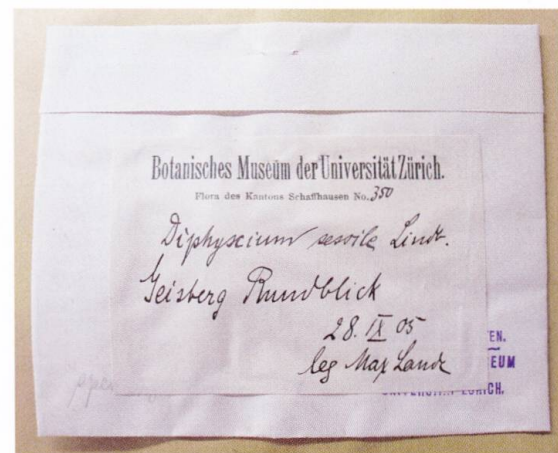 Botanisches Museum der Universität Zürich.
Flora des Kantons Schaffhausen No. 350
Diphyscium sessile Lindb.
Geisberg Rundblick
28. IX 05
leg Max Land
TEN.
EUM
UNIVERSITÄT ZÜRICH.